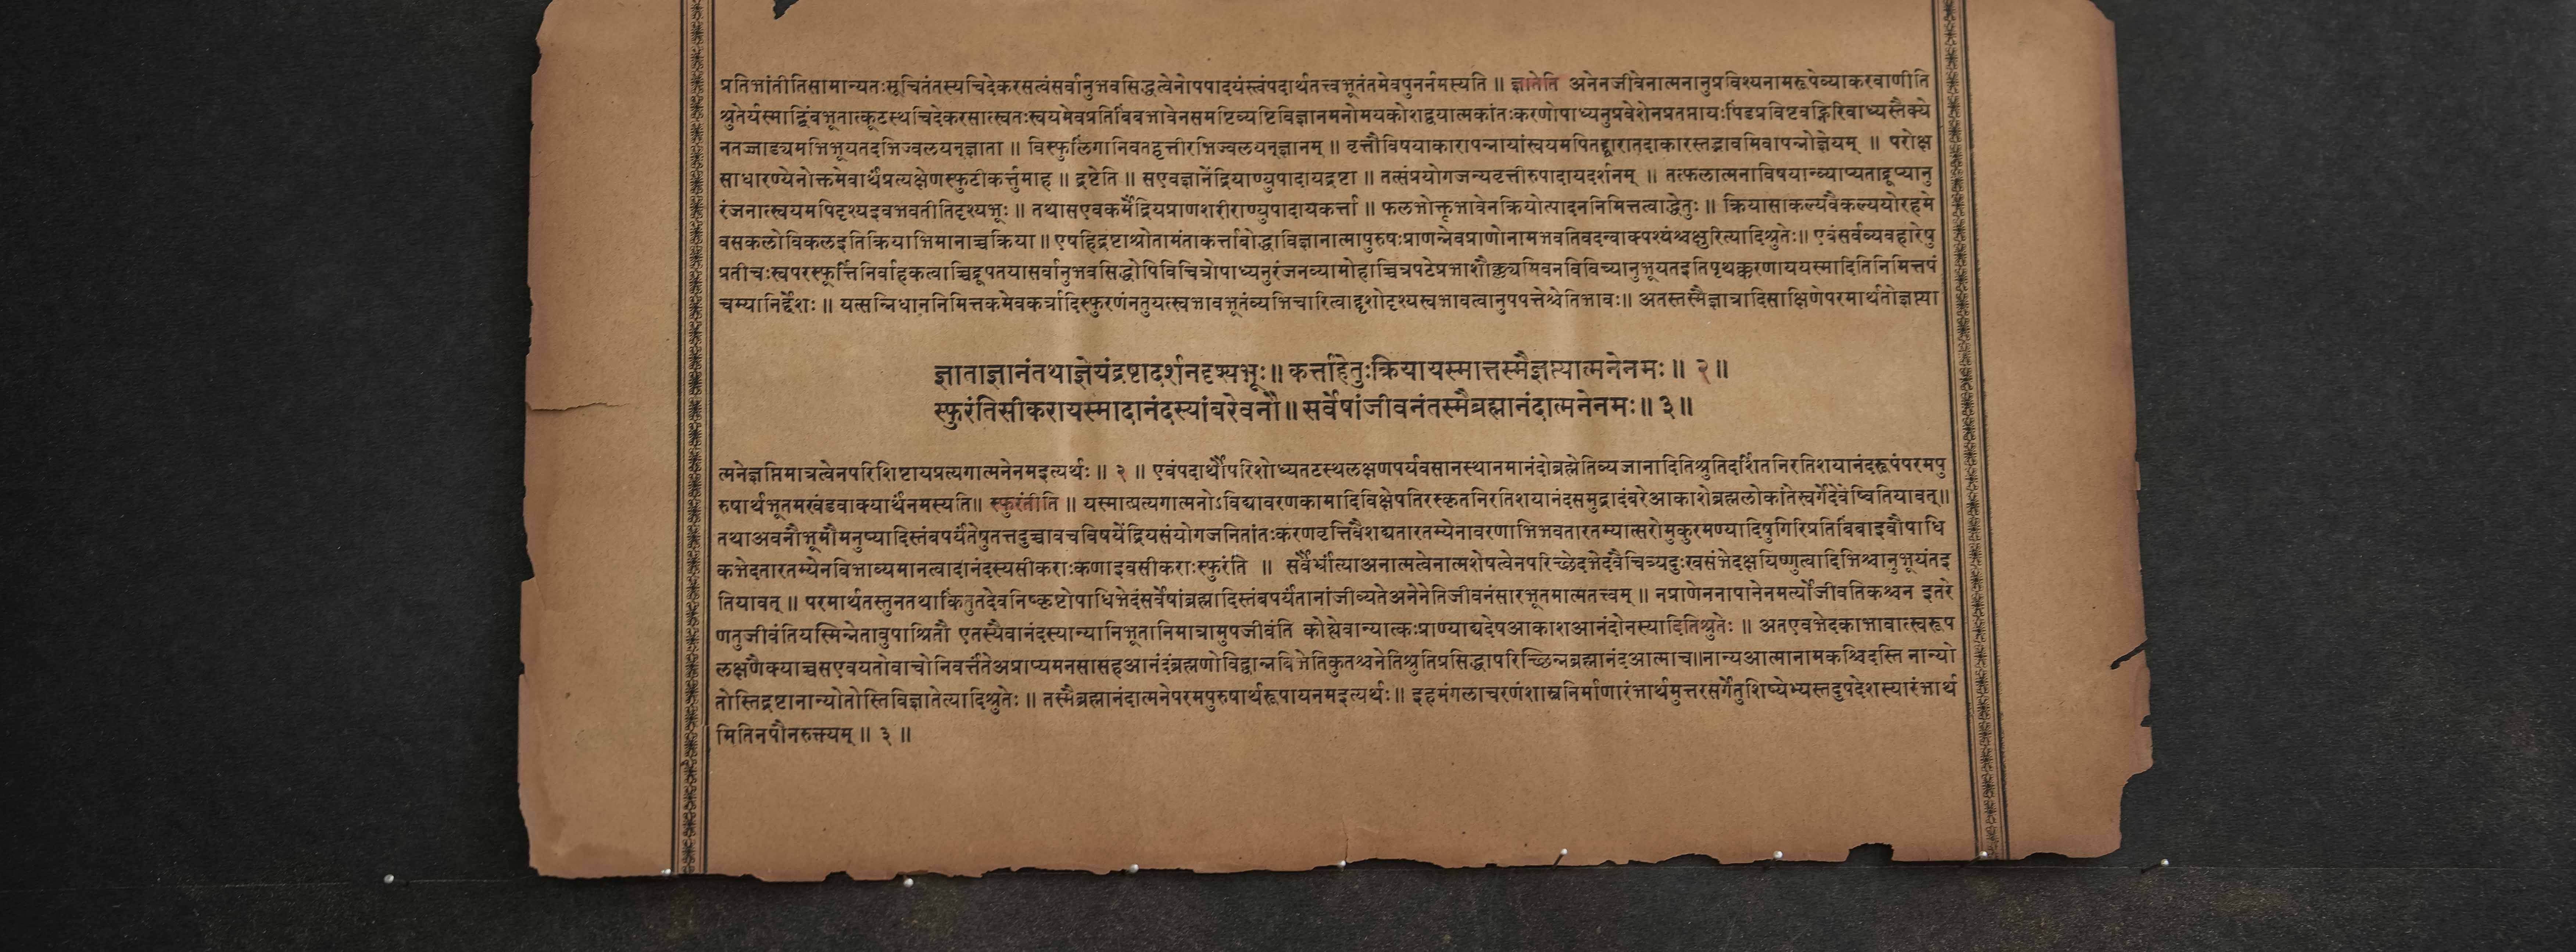 प्रतिभांतीतिसामान्यतःसूचितंतस्यचिदेकरसत्वंसर्वानुभवसिद्धत्वेनोपपादयंस्त्वंपदार्थतत्त्वभूतंतमेवपुनर्नमस्यति ॥ ज्ञातेति अनेनजीवेनात्मनानुप्रविश्यनामरूपेव्याकरवाणीति
श्रुतेर्यस्माद्बिंबभूतात्कूटस्थचिदेकरसात्स्वतःस्वयमेवप्रतिबिंबभावेनसमष्टिव्यष्टिविज्ञानमनोमयकोशद्वयात्मकांतःकरणोपाध्यनुप्रवेशेनप्रतप्तायःपिंडप्रविष्टवह्निरिवाध्यस्तैक्ये
नतज्जाड्यमभिभूयतदभिज्वलयन्ज्ञाता ॥ विस्फुलिंगानिवतद्वृत्तीरभिज्वलयन्ज्ञानम् ॥ वृत्तौविषयाकारापन्नायांस्वयमपितद्द्वारातदाकारस्तद्भावमिवापन्नोज्ञेयम् ॥ परोक्ष
साधारण्येनोक्तमेवार्थंप्रत्यक्षेणस्फुटीकर्त्तुमाह ॥ द्रष्टेति ॥ सएवज्ञानेंद्रियाण्युपादायद्रष्टा ॥ तत्संप्रयोगजन्यवृत्तीरुपादायदर्शनम् ॥ तत्फलात्मनाविषयान्व्याप्यताद्रूप्यानु
रंजनात्स्वयमपिदृश्यइवभवतीतिदृश्यभूः ॥ तथासएवकर्मेंद्रियप्राणशरीराण्युपादायकर्त्ता ॥ फलभोक्तृभावेनक्रियोत्पादननिमित्तत्वाद्धेतुः ॥ क्रियासाकल्यवैकल्ययोरहमे
वसकलोविकलइतिक्रियाभिमानाच्चक्रिया ॥ एषहिद्रष्टाश्रोतामंताकर्त्ताबोद्धाविज्ञानात्मापुरुषःप्राणन्नेवप्राणोनामभवतिवदन्वाक्पश्यंश्चक्षुरित्यादिश्रुतेः॥ एवंसर्वव्यवहारेषु
प्रतीचःस्वपरस्फूर्त्तिनिर्वाहकत्वाच्चिद्रूपतयासर्वानुभवसिद्धोपिविचित्रोपाध्यनुरंजनव्यामोहाच्चित्रपटेप्रभाशौक्ल्यमिवनविविच्यानुभूयतइतिपृथक्करणाययस्मादितिनिमित्तपं
चम्यानिर्द्देशः ॥ यत्सन्निधाननिमित्तकमेवकर्त्रादिस्फुरणंनतुयत्स्वभावभूतंव्यभिचारित्वाद्दृशोदृश्यस्वभावत्वानुपपत्तेश्चेतिभावः॥ अतस्तस्मैज्ञात्रादिसाक्षिणेपरमार्थतोज्ञप्त्या
ज्ञाताज्ञानंतथाज्ञेयंद्रष्टादर्शनदृश्यभूः॥ कर्त्ताहेतुःक्रियायस्मात्तस्मैज्ञप्त्यात्मनेनमः ॥ २ ॥
स्फुरंतिसीकरायस्मादानंदस्यांबरेवनौ ॥ सर्वेषांजीवनंतस्मैब्रह्मानंदात्मनेनमः ॥ ३ ॥
त्मनेज्ञप्तिमात्रत्वेनपरिशिष्टायप्रत्यगात्मनेनमइत्यर्थः ॥ २ ॥ एवंपदार्थौपरिशोध्यतटस्थलक्षणपर्यवसानस्थानमानंदोब्रह्मेतिव्यजानादितिश्रुतिदर्शितनिरतिशयानंदरूपंपरमपु
रुषार्थभूतमखंडवाक्यार्थंनमस्यति॥ स्फुरंतीति ॥ यस्मात्प्रत्यगात्मनोऽविद्यावरणकामादिविक्षेपतिरस्कृतनिरतिशयानंदसमुद्रादंबरेआकाशेब्रह्मलोकांतेस्वर्गेदेवेष्वितियावत्॥
तथाअवनौभूमौमनुष्यादिस्तंबपर्यंतेषुतत्तदुच्चावचविषयेंद्रियसंयोगजनितांतःकरणवृत्तिवैशद्यतारतम्येनावरणाभिभवतारतम्यात्सरोमुकुरमण्यादिषुगिरिप्रतिबिंबाइवौपाधि
कभेदतारतम्येनविभाव्यमानत्वादानंदस्यसीकराःकणाइवसीकराःस्फुरंति ॥ सर्वैर्भ्रांत्याअनात्मत्वेनात्मशेषत्वेनपरिच्छेदभेदवैचित्र्यदुःखसंभेदक्षयिष्णुत्वादिभिश्चानुभूयंतइ
तियावत् ॥ परमार्थतस्तुनतथाकिंतुतदेवनिष्कृष्टोपाधिभेदंसर्वेषांब्रह्मादिस्तंबपर्यंतानांजीव्यतेअनेनेतिजीवनंसारभूतमात्मतत्त्वम् ॥ नप्राणेननापानेनमर्त्योजीवतिकश्चन इतरे
णतुजीवंतियस्मिन्नेतावुपाश्रितौ एतस्यैवानंदस्यान्यानिभूतानिमात्रामुपजीवंति कोह्येवान्यात्कःप्राण्याद्यदेषआकाशआनंदोनस्यादितिश्रुतेः ॥ अतएवभेदकाभावात्स्वरूप
लक्षणैक्याच्चसएवयतोवाचोनिवर्त्तंतेअप्राप्यमनसासहआनंदंब्रह्मणोविद्वान्नबिभेतिकुतश्चनेतिश्रुतिप्रसिद्धापरिच्छिन्नब्रह्मानंदआत्माच॥नान्यआत्मानामकश्चिदस्ति नान्यो
तोस्तिद्रष्टानान्योतोस्तिविज्ञातेत्यादिश्रुतेः ॥ तस्मैब्रह्मानंदात्मनेपरमपुरुषार्थरूपायनमइत्यर्थः ॥ इहमंगलाचरणंशास्त्रनिर्माणारंभार्थमुत्तरसर्गेतुशिष्येभ्यस्तदुपदेशस्यारंभार्थ
मितिनपौनरुक्त्यम् ॥ ३ ॥